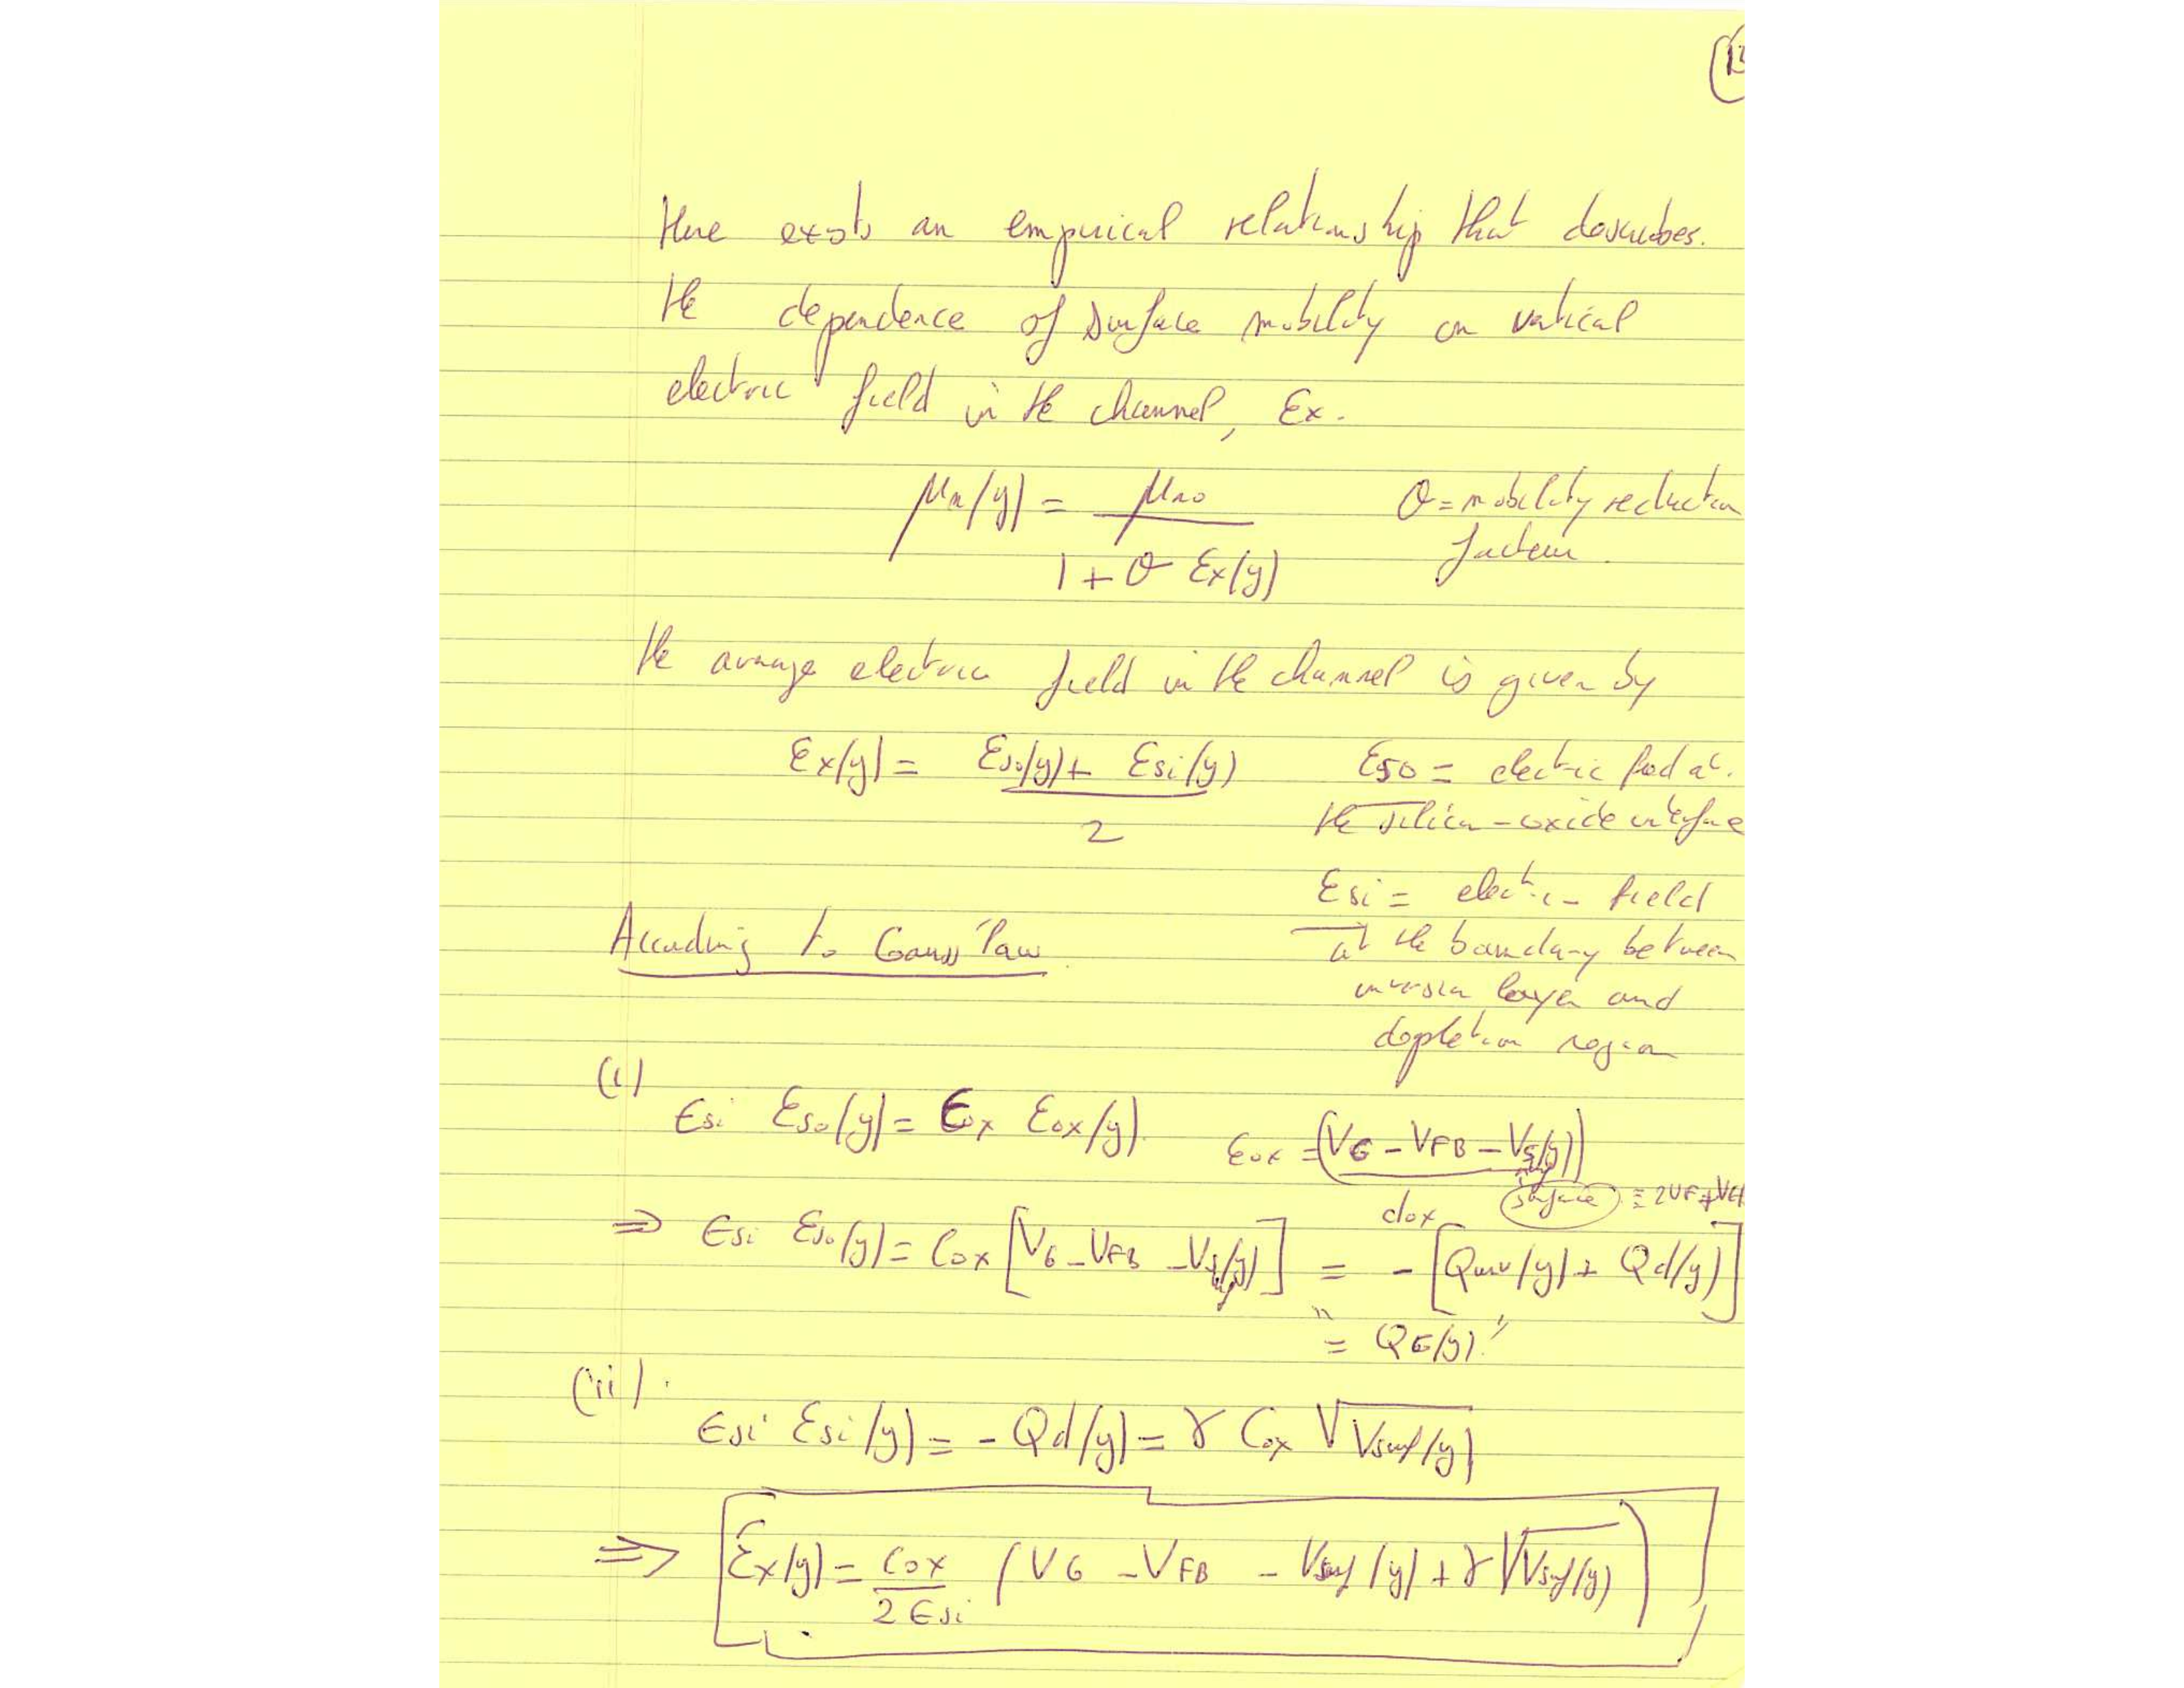 (13
There exists an empirical relationship that describes.
the dependence of surface mobility on vertical
electric field in the channel, Ex.
μn(y) = μno / (1 + θ Ex(y))
θ = mobility reduction
factor.
the average electric field in the channel is given by
Ex(y) = (Eso(y) + Esi(y)) / 2
Eso = electric field at.
the silicon-oxide interface
Esi = electric field
at the boundary between
inversion layer and
depletion region
According to Gauss' law
(i)
ϵsi Eso(y) = ϵox Eox(y).
Eox = (VG - VFB - Vs(y)) / dox
surface ≡ 2VF + VCB
⇒ ϵsi Eso(y) = Cox [VG - VFB - Vs(y)] = - [Qinv(y) + Qd(y)]
" = QG(y) "
(ii).
ϵsi Esi(y) = - Qd(y) = γ Cox √Vsurf(y)
⇒ Ex(y) = Cox / 2ϵsi (VG - VFB - Vsurf(y) + γ √Vsurf(y))